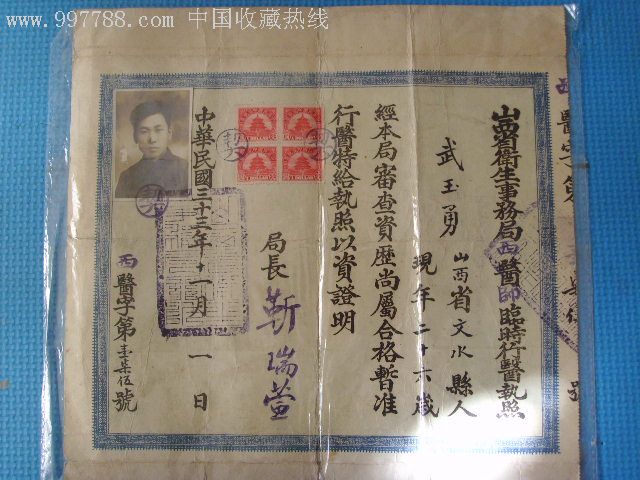 www.997788.com 中国收藏热线
山西省衛生事務局西醫師臨時行醫執照
武玉勇 山西省文水縣人
現年二十六歲
經本局審查資歷尚屬合格暫准
行醫特給執照以資證明
局長 靳瑞萱
中華民國三十三年十一月一日
西醫字第壹柒伍號
西醫字第
號